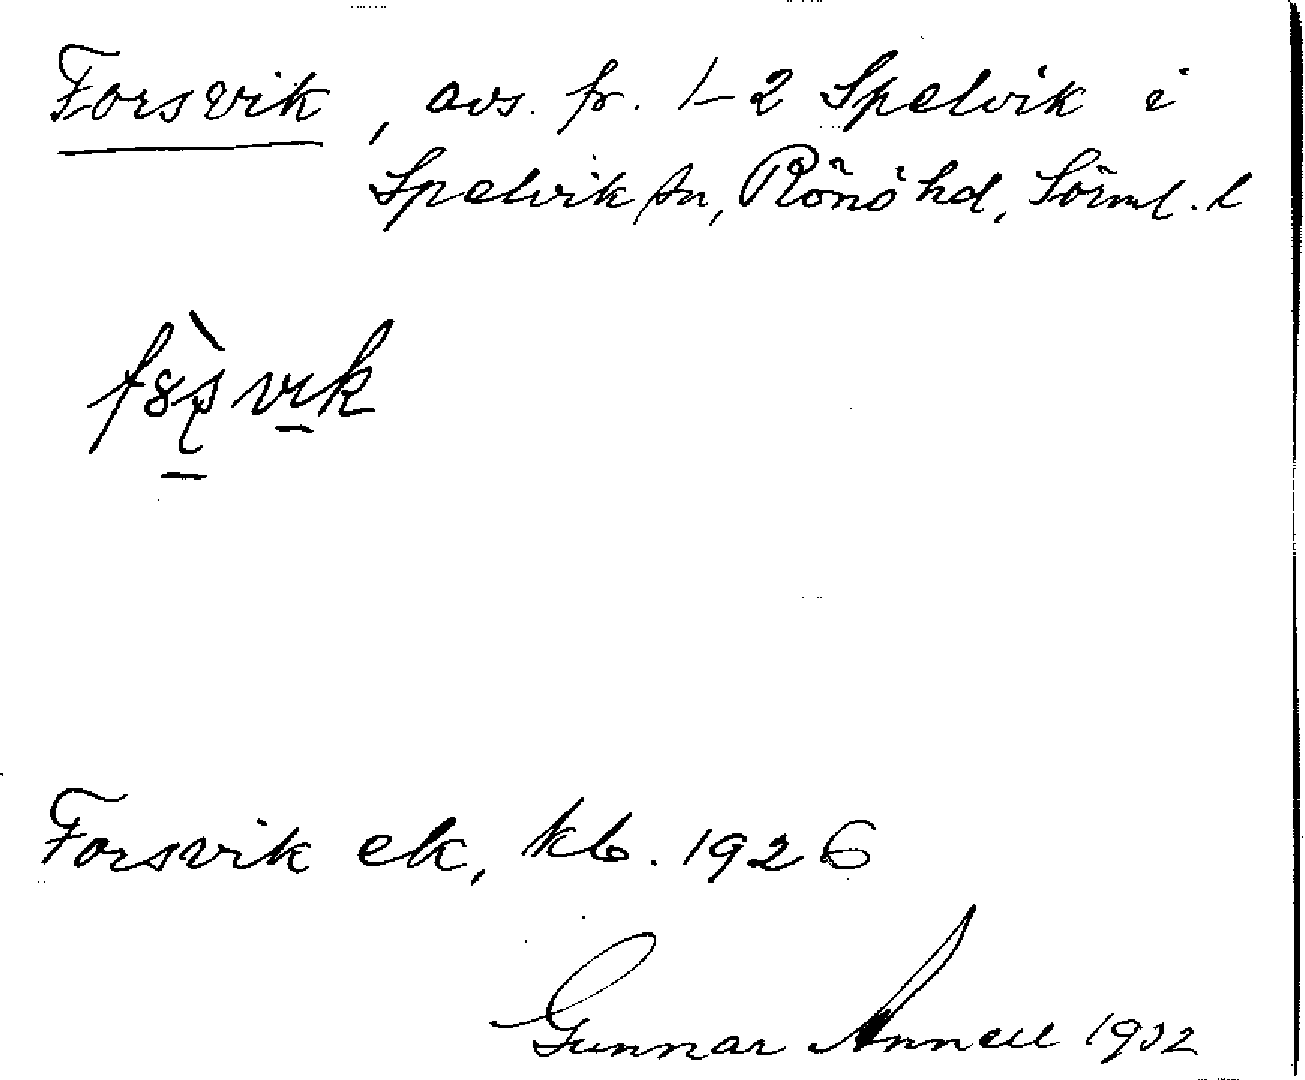 Forsvik, avs. fr. 1–2 Spelvik i
Spelvik sn, Rönö hd, Sörml. l
Forsvik ek, kb. 1926
Gunnar Annell 1932